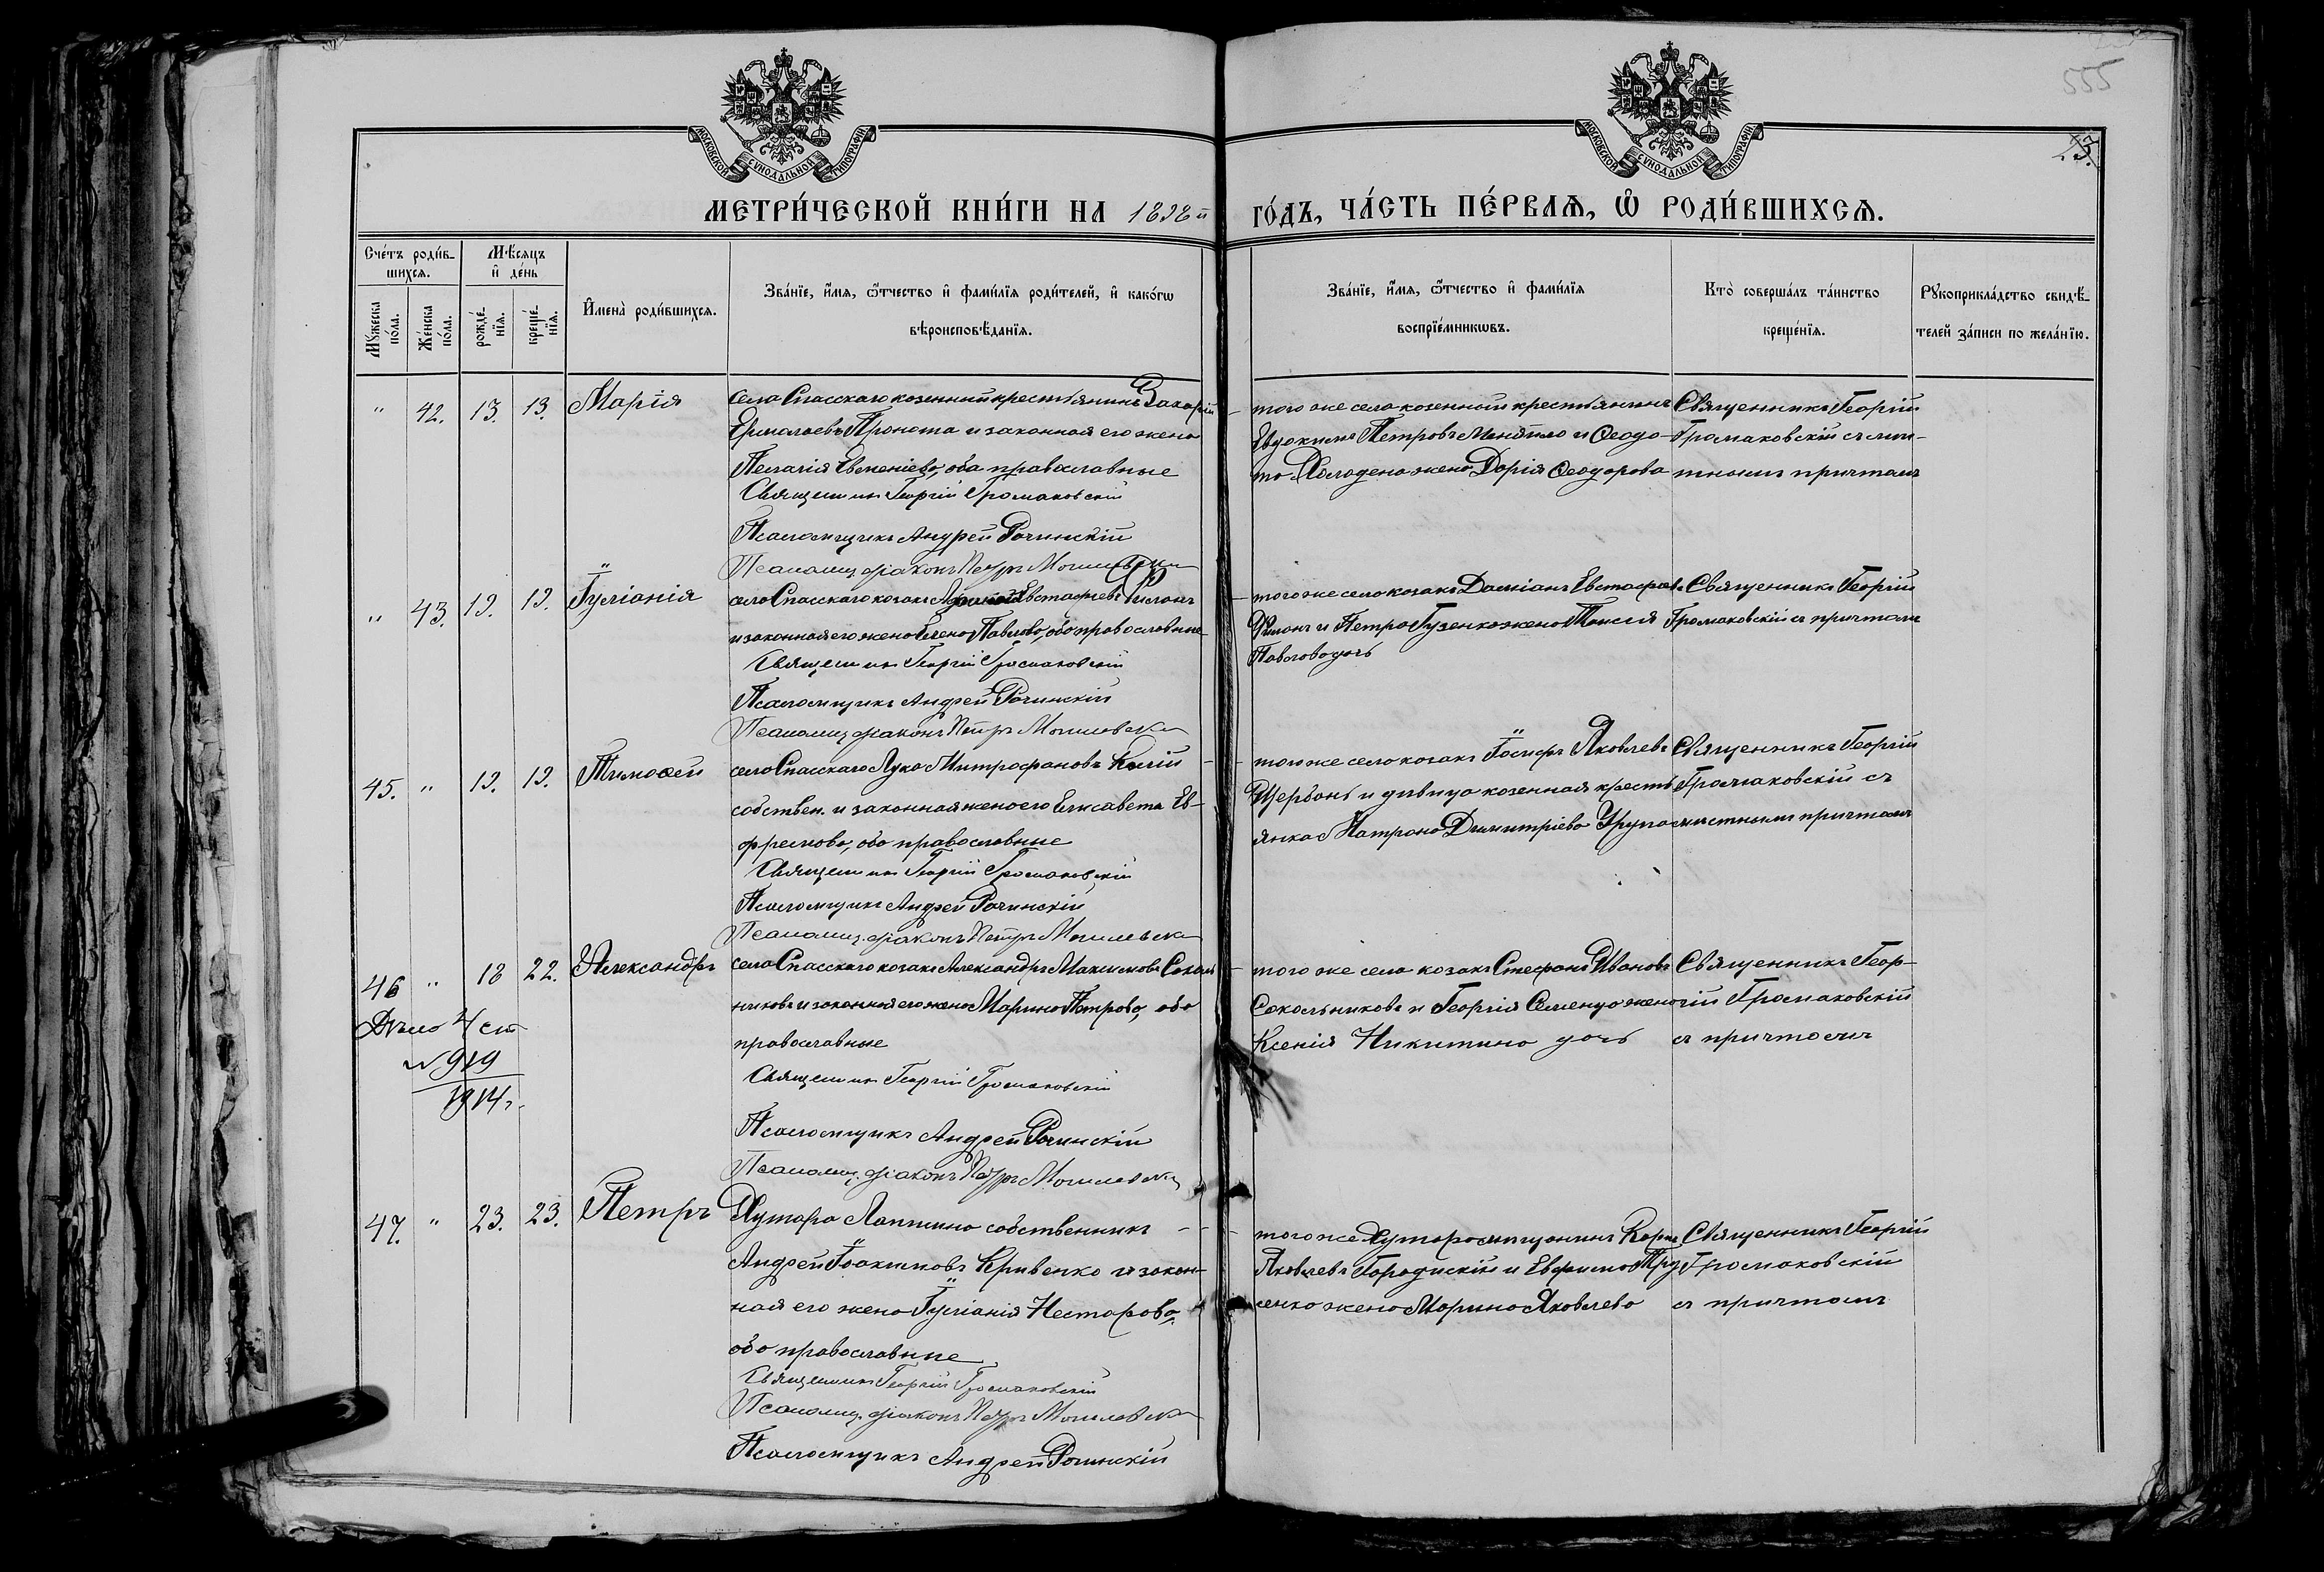 555
23.
МОСКОВСКОЙ СѴНОДАЛЬНОЙ ТИПОГРАФІИ
МОСКОВСКОЙ СѴНОДАЛЬНОЙ ТИПОГРАФІИ
МЕТРИ́ЧЕСКОЙ КНИ́ГИ НА 1898й ГО́ДЪ, ЧА́СТЬ ПЕ́РВАѦ, Ѡ҆ РОДИ́ВШИХСѦ.
Сче́тъ роди́в-
шихсѧ.
Мꙋ́жеска по́ла.
Же́нска по́ла.
Мѣ́сѧцъ
и҆ де́нь
рожде́-нїѧ.
креще́-нїѧ.
И҆мена̀ роди́вшихсѧ.
Зва́нїе, и҆́мѧ, ѻ҆́тчество и҆ фами́лїѧ роди́телей, и҆ како́гѡ
вѣроисповѣ́данїѧ.
Зва́нїе, и҆́мѧ, ѻ҆́тчество и҆ фами́лїѧ
воспрїе́мникѡвъ.
Кто̀ соверша́лъ та́инство
креще́нїѧ.
Рꙋкоприкла́дство свидѣ́-
телей за́писи по жела́нїю.
" 42. 13. 13. Марія
села Спасскаго козенный крестьянинъ Захарій
Ермолаевъ Пронота и законная его жена
Пелагія Евменіева, оба православные
Священникъ Георгій Громаковскій
Псаломщикъ Андрей Рачинскій
Псаломщ. діаконъ Петръ Могилевск
того же села козенный крестьянинъ
Евдокимъ Петровъ Минтило и Ѳеодо-
та Холодена жена Дарія Ѳеодорова
Священникъ Георгій
Громаковскій съ мѣ-
тнымъ причтомъ
" 43. 19. 19. Іуліанія
села Спасскаго козакъ Евстафіевъ Филонъ
и законная его жена Елена Павлова, оба православные
Священникъ Георгій Громаковскій
Псаломщикъ Андрей Рачинскій
Псаломщ. діаконъ Петръ Могилевск
того же села козакъ Даміанъ Евстафіевъ
Филонъ и Петра Гузенко жена Таисія
Павлова дочь
Священникъ Георгій
Громаковскій съ причтомъ
45. " 19. 19. Тимоѳей
села Спасскаго Лука Митрофановъ Кысій
собствен. и законная жена его Елисавета Ев-
фремова, оба православные
Священникъ Георгій Громаковскій
Псаломщикъ Андрей Рачинскій
Псаломщ. діаконъ Петръ Могилевск
того же села козакъ Іосифъ Яковлевъ
Щербань и дѣвица козенная кресть-
янка Матрона Димитріева
Священникъ Георгій
Громаковскій съ
мѣстнымъ причтомъ
46 " 18 22. Александръ
Дѣло 4 ст
№ 919
1914 г.
села Спасскаго козакъ Александръ Максимовъ Соколь-
никовъ и законная его жена Марина Петрова, оба
православные
Священникъ Георгій Громаковскій
Псаломщикъ Андрей Рачинскій
Псаломщ. діаконъ Петръ Могилевск
того же села козакъ Стефанъ Ивановъ
Сокольниковъ и Георгія Семенца жена
Ксенія Никитина дочь
Священникъ Геор-
гій Громаковскій
съ причтомъ
47. " 23. 23. Петръ
Хутора Лаптина собственникъ
Андрей Іоакимовъ Кривенко и закон-
ная его жена Іуліанія Несторова,
оба православные
Священникъ Георгій Громаковскій
Псаломщ. діаконъ Петръ Могилевск
Псаломщикъ Андрей Рачинскій
того же Хутора мѣщанинъ Карпъ
Яковлевъ Городискій и Евфима Тру-
сенко жена Марина Яковлева
Священникъ Георгій
Громаковскій
съ причтомъ